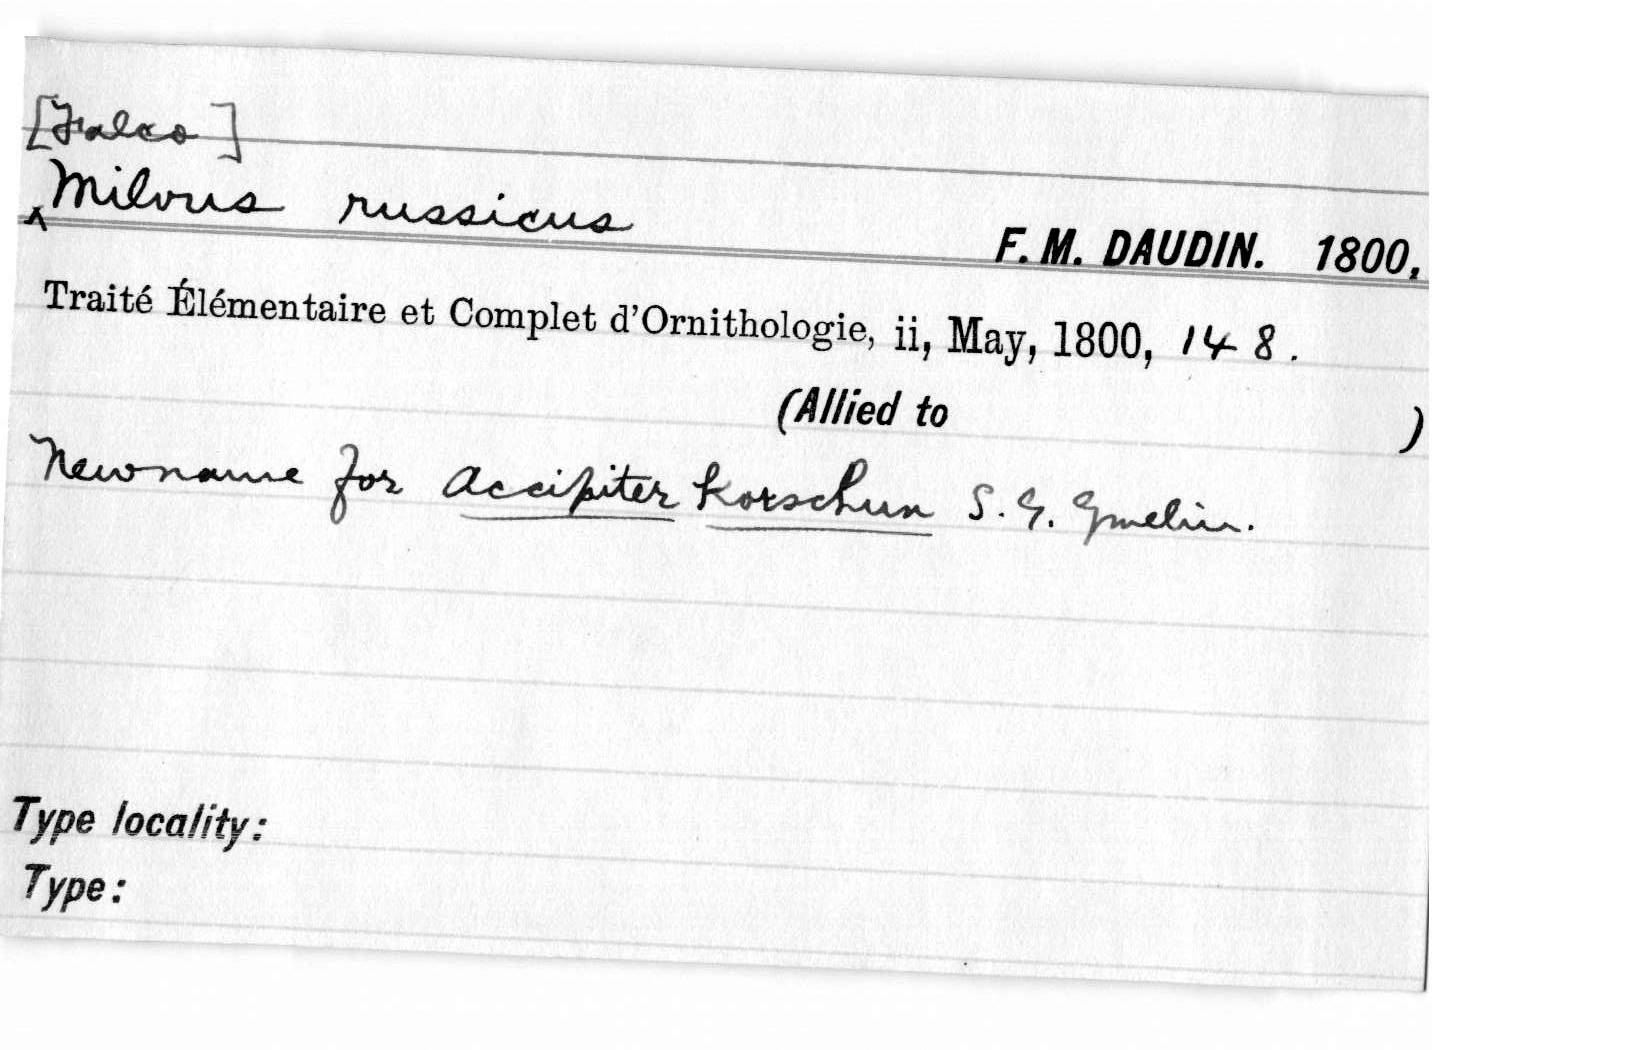 [Falco]
^Milvus russicus
F. M. DAUDIN. 1800.
Traité Élémentaire et Complet d'Ornithologie, ii, May, 1800, 148.
(Allied to )
New name for Accipiter Korschun S. G. Gmelin.
Type locality:
Type: